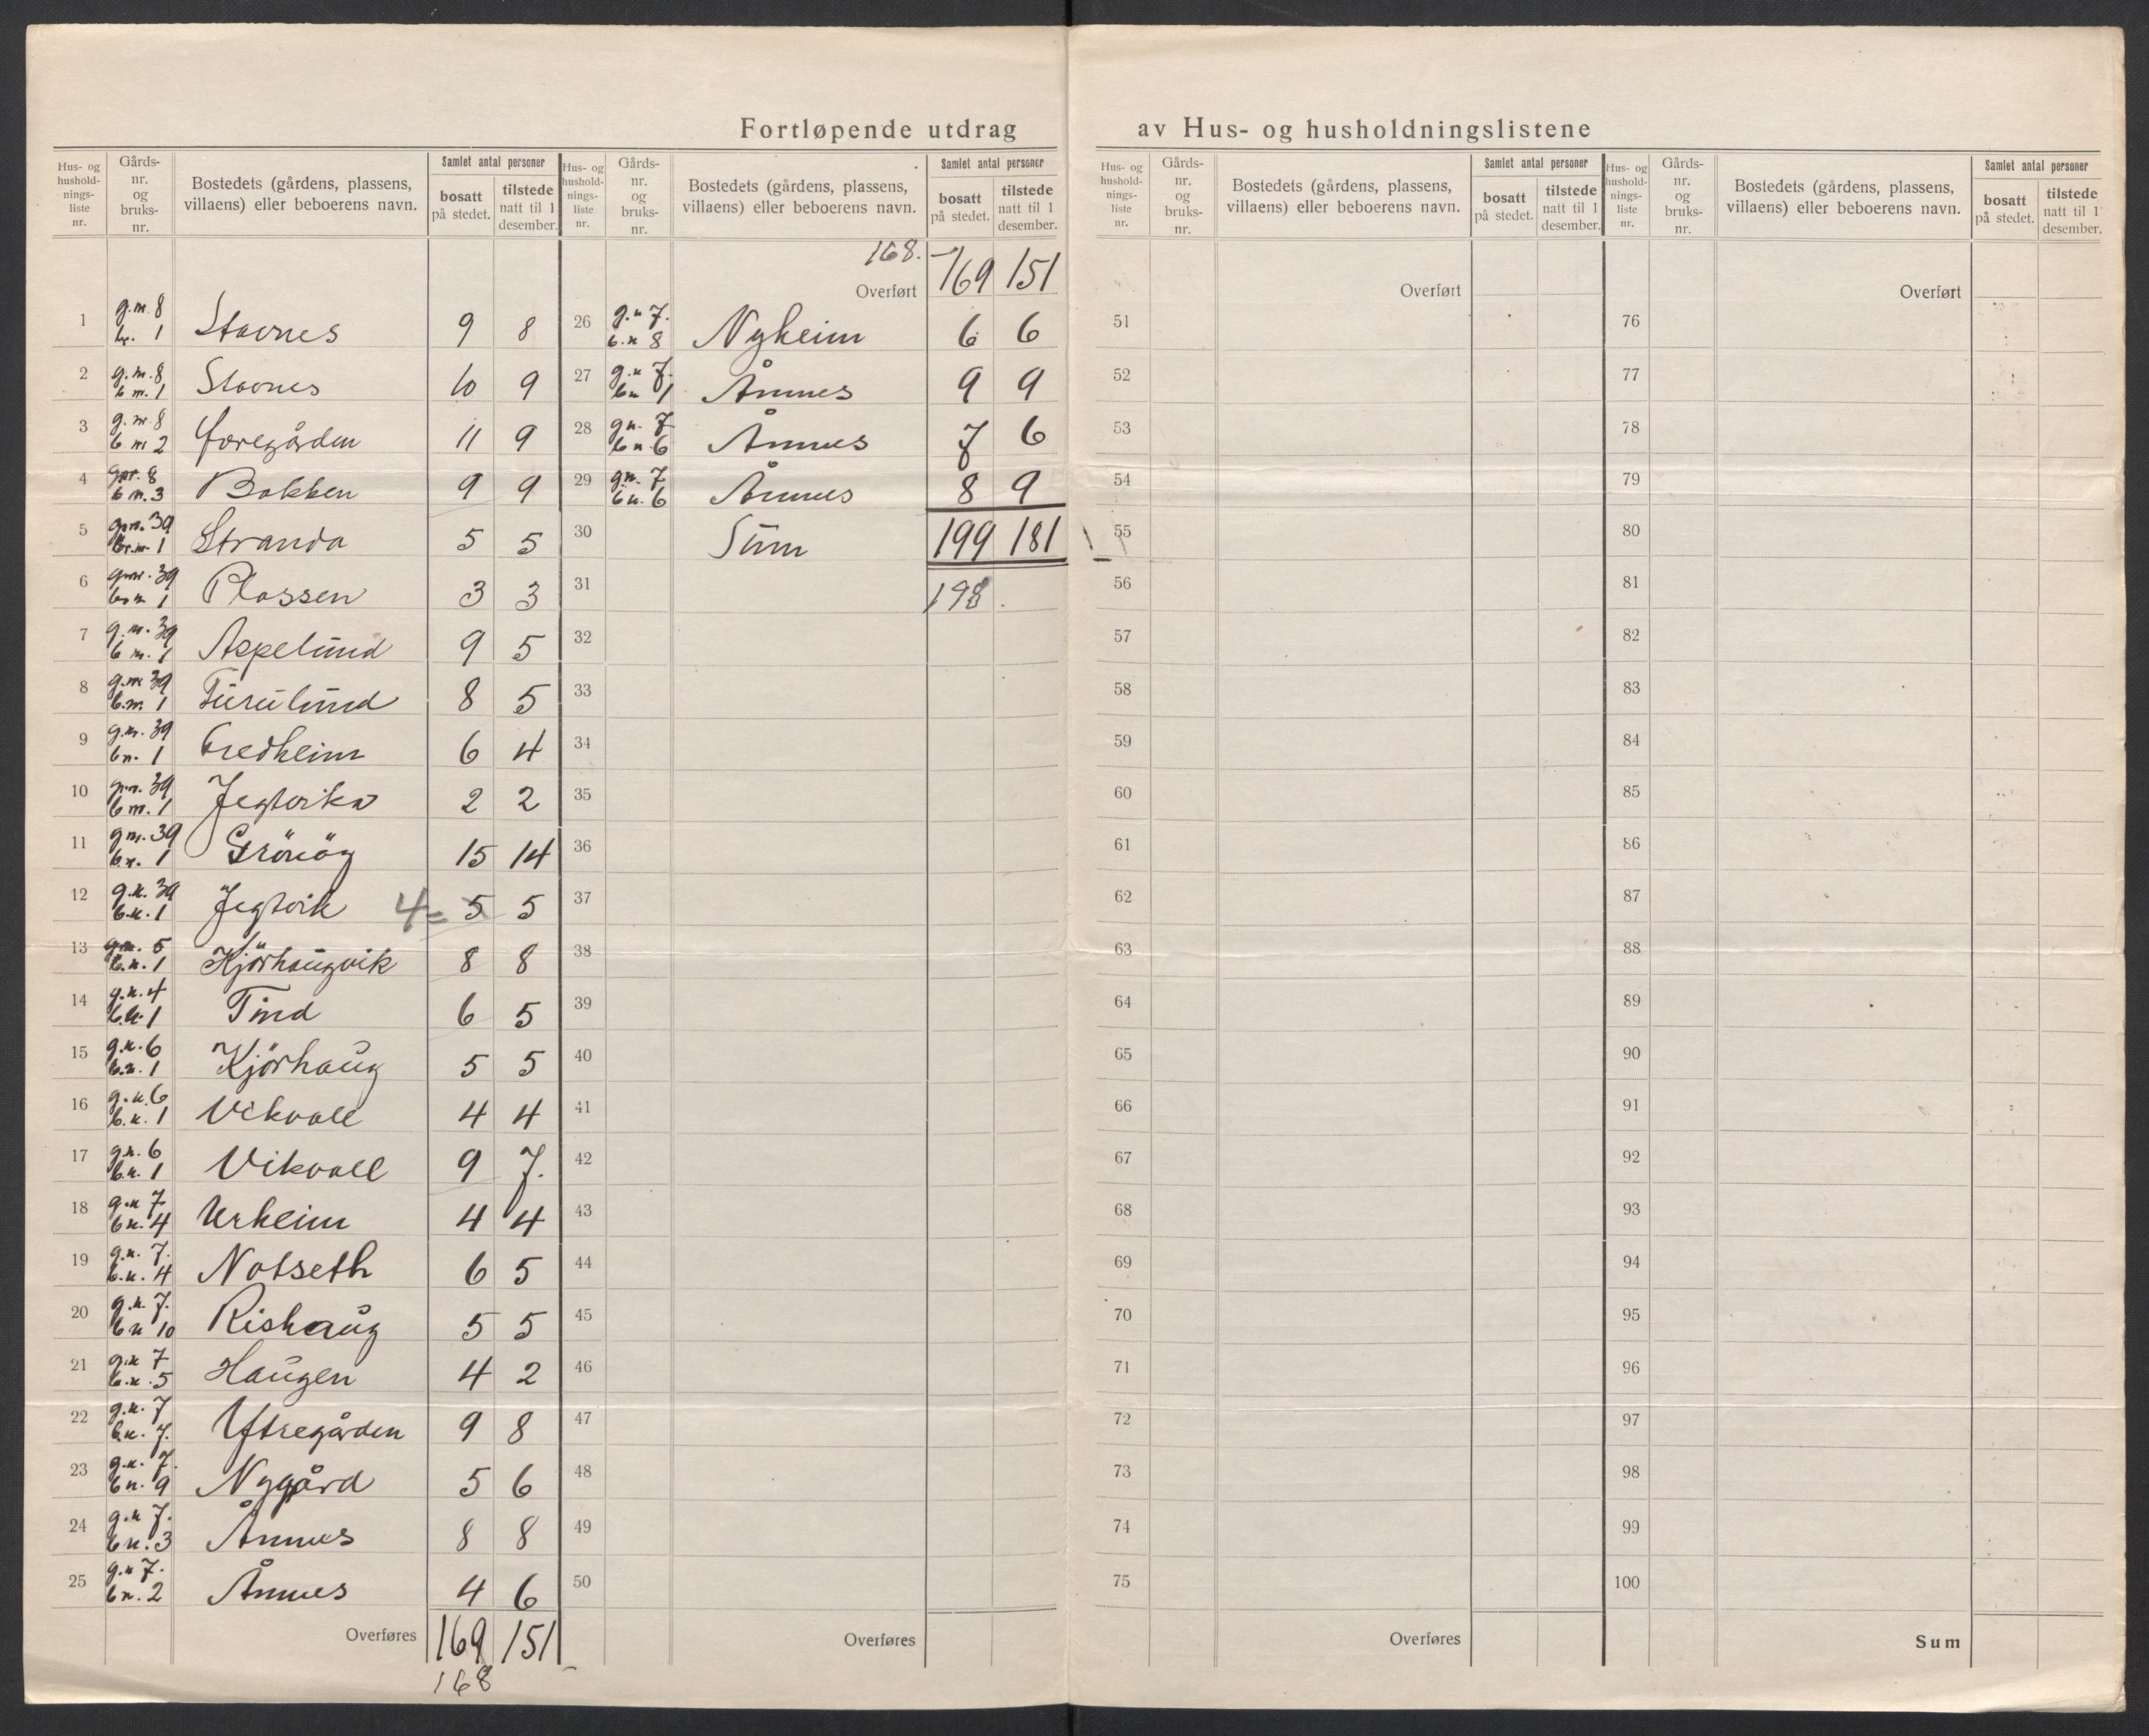 Fortløpende utdrag av Hus- og husholdningslistene
Hus- og husholdningsliste nr. | Gårdsnr. og bruksnr. | Bostedets (gårdens, plassens, villaens) eller beboerens navn. | Samlet antal personer: bosatt på stedet. | tilstede natt til 1 desember.
1 g.nr. 8 br. 1 Stavnes 9 8
2 g.nr. 8 b nr. 1 Stavnes 10 9
3 g. nr. 8 b nr 2 Foregården 11 9
4 gnr. 8 b n. 3 Bakken 9 9
5 gnr. 39 br.nr 1 Stranda 5 5
6 gnr. 39 bnr 1 Plassen 3 3
7 g. nr. 39 b nr. 1 Aspelund 9 5
8 g.nr 39 b.nr. 1 Furulund 8 5
9 g.nr. 39 bn. 1 Fredheim 6 4
10 gnr. 39 b nr. 1 Jegtvika 2 2
11 gnr. 39 bn. 1 Grönög 15 14
12 g.n. 39 b.n. 1 Jegtvik 4= 5 5
13 gn. 5 b.n. 1 Kjörhaugvik 8 8
14 g.n. 4 b.n. 1 Tind 6 5
15 g.n. 6 b.n. 1 Kjörhaug 5 5
16 g.n. 6 b.n. 1 Vikvall 4 4
17 gn. 6 bn. 1 Vikvall 9 7.
18 g.n 7 bn. 4 Urheim 4 4
19 g.n. 7. b.n. 4 Notseth 6 5
20 g.n. 7. bn 10 Rishaug 5 5
21 g.n 7 b.n. 5 Haugen 4 2
22 g.n. 7 bn. 7. Yttregården 9 8
23 g.n. 7. bn. 9 Nygård 5 6
24 g.n 7. bn. 3 Årnes 8 8
25 g.n 7. bn. 2 Årnes 4 6
Overføres 169 151
168
Hus- og husholdningsliste nr. | Gårdsnr. og bruksnr. | Bostedets (gårdens, plassens, villaens) eller beboerens navn. | Samlet antal personer: bosatt på stedet. | tilstede natt til 1 desember.
168.
Overført 169 151
26 g.n 7. b.n 8 Nyheim 6 6
27 g.n 7. bn 1 Årnes 9 9
28 gn. 7 bn 6 Årnes 7 6
29 g.n. 7 bn. 6 Årnes 8 9
30 Sum 199 181
31 198.
32
33
34
35
36
37
38
39
40
41
42
43
44
45
46
47
48
49
50
Overføres
Hus- og husholdningsliste nr. | Gårdsnr. og bruksnr. | Bostedets (gårdens, plassens, villaens) eller beboerens navn. | Samlet antal personer: bosatt på stedet. | tilstede natt til 1 desember.
Overført
51
52
53
54
55
56
57
58
59
60
61
62
63
64
65
66
67
68
69
70
71
72
73
74
75
Overføres
Hus- og husholdningsliste nr. | Gårdsnr. og bruksnr. | Bostedets (gårdens, plassens, villaens) eller beboerens navn. | Samlet antal personer: bosatt på stedet. | tilstede natt til 1 desember.
Overført
76
77
78
79
80
81
82
83
84
85
86
87
88
89
90
91
92
93
94
95
96
97
98
99
100
Sum